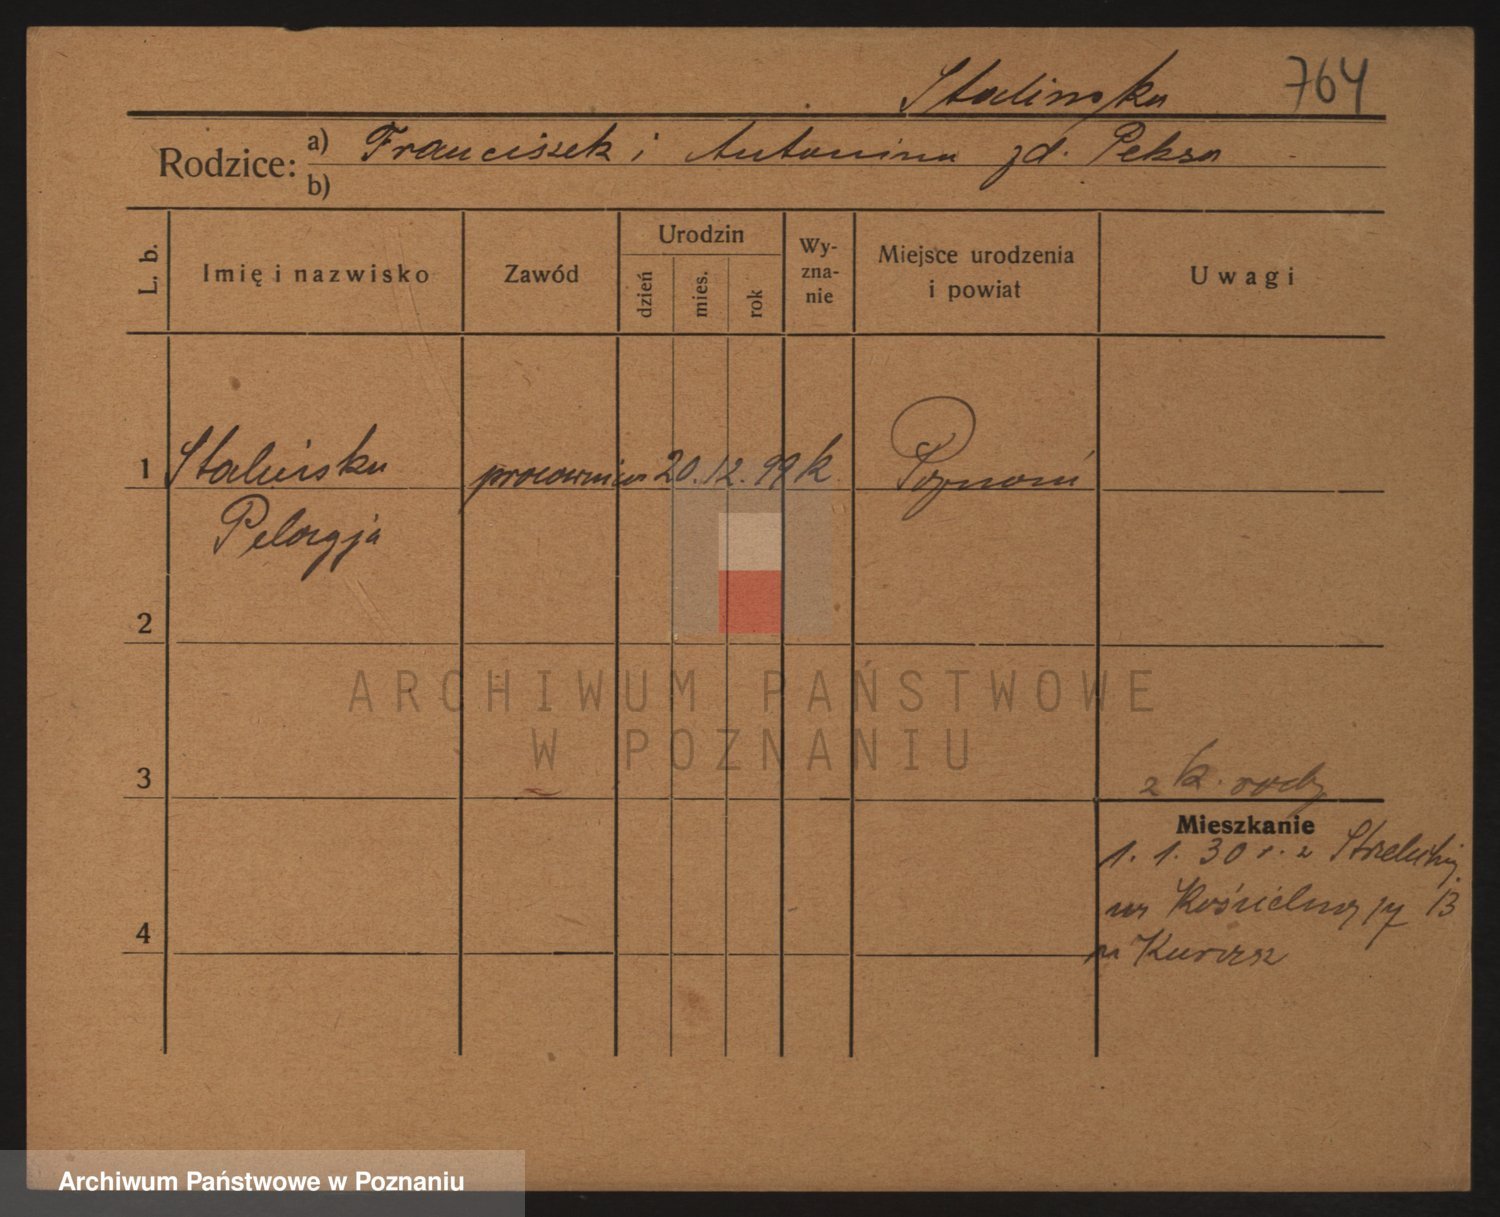 Stalinska 764
Rodzice: a) Franciszek i Antonina zd. Peksa
b)
L. b.
Imię i nazwisko
Zawód
Urodzin
dzień
mies.
rok
Wy-
zna-
nie
Miejsce urodzenia
i powiat
Uwagi
1 Stalinska pracownica 20. 12. 99 k Poznań
Pelagja
2
ARCHIWUM PAŃSTWOWE
W POZNANIU
3
Mieszkanie
1. 1. 30 r. z
na 13
4
Archiwum Państwowe w Poznaniu